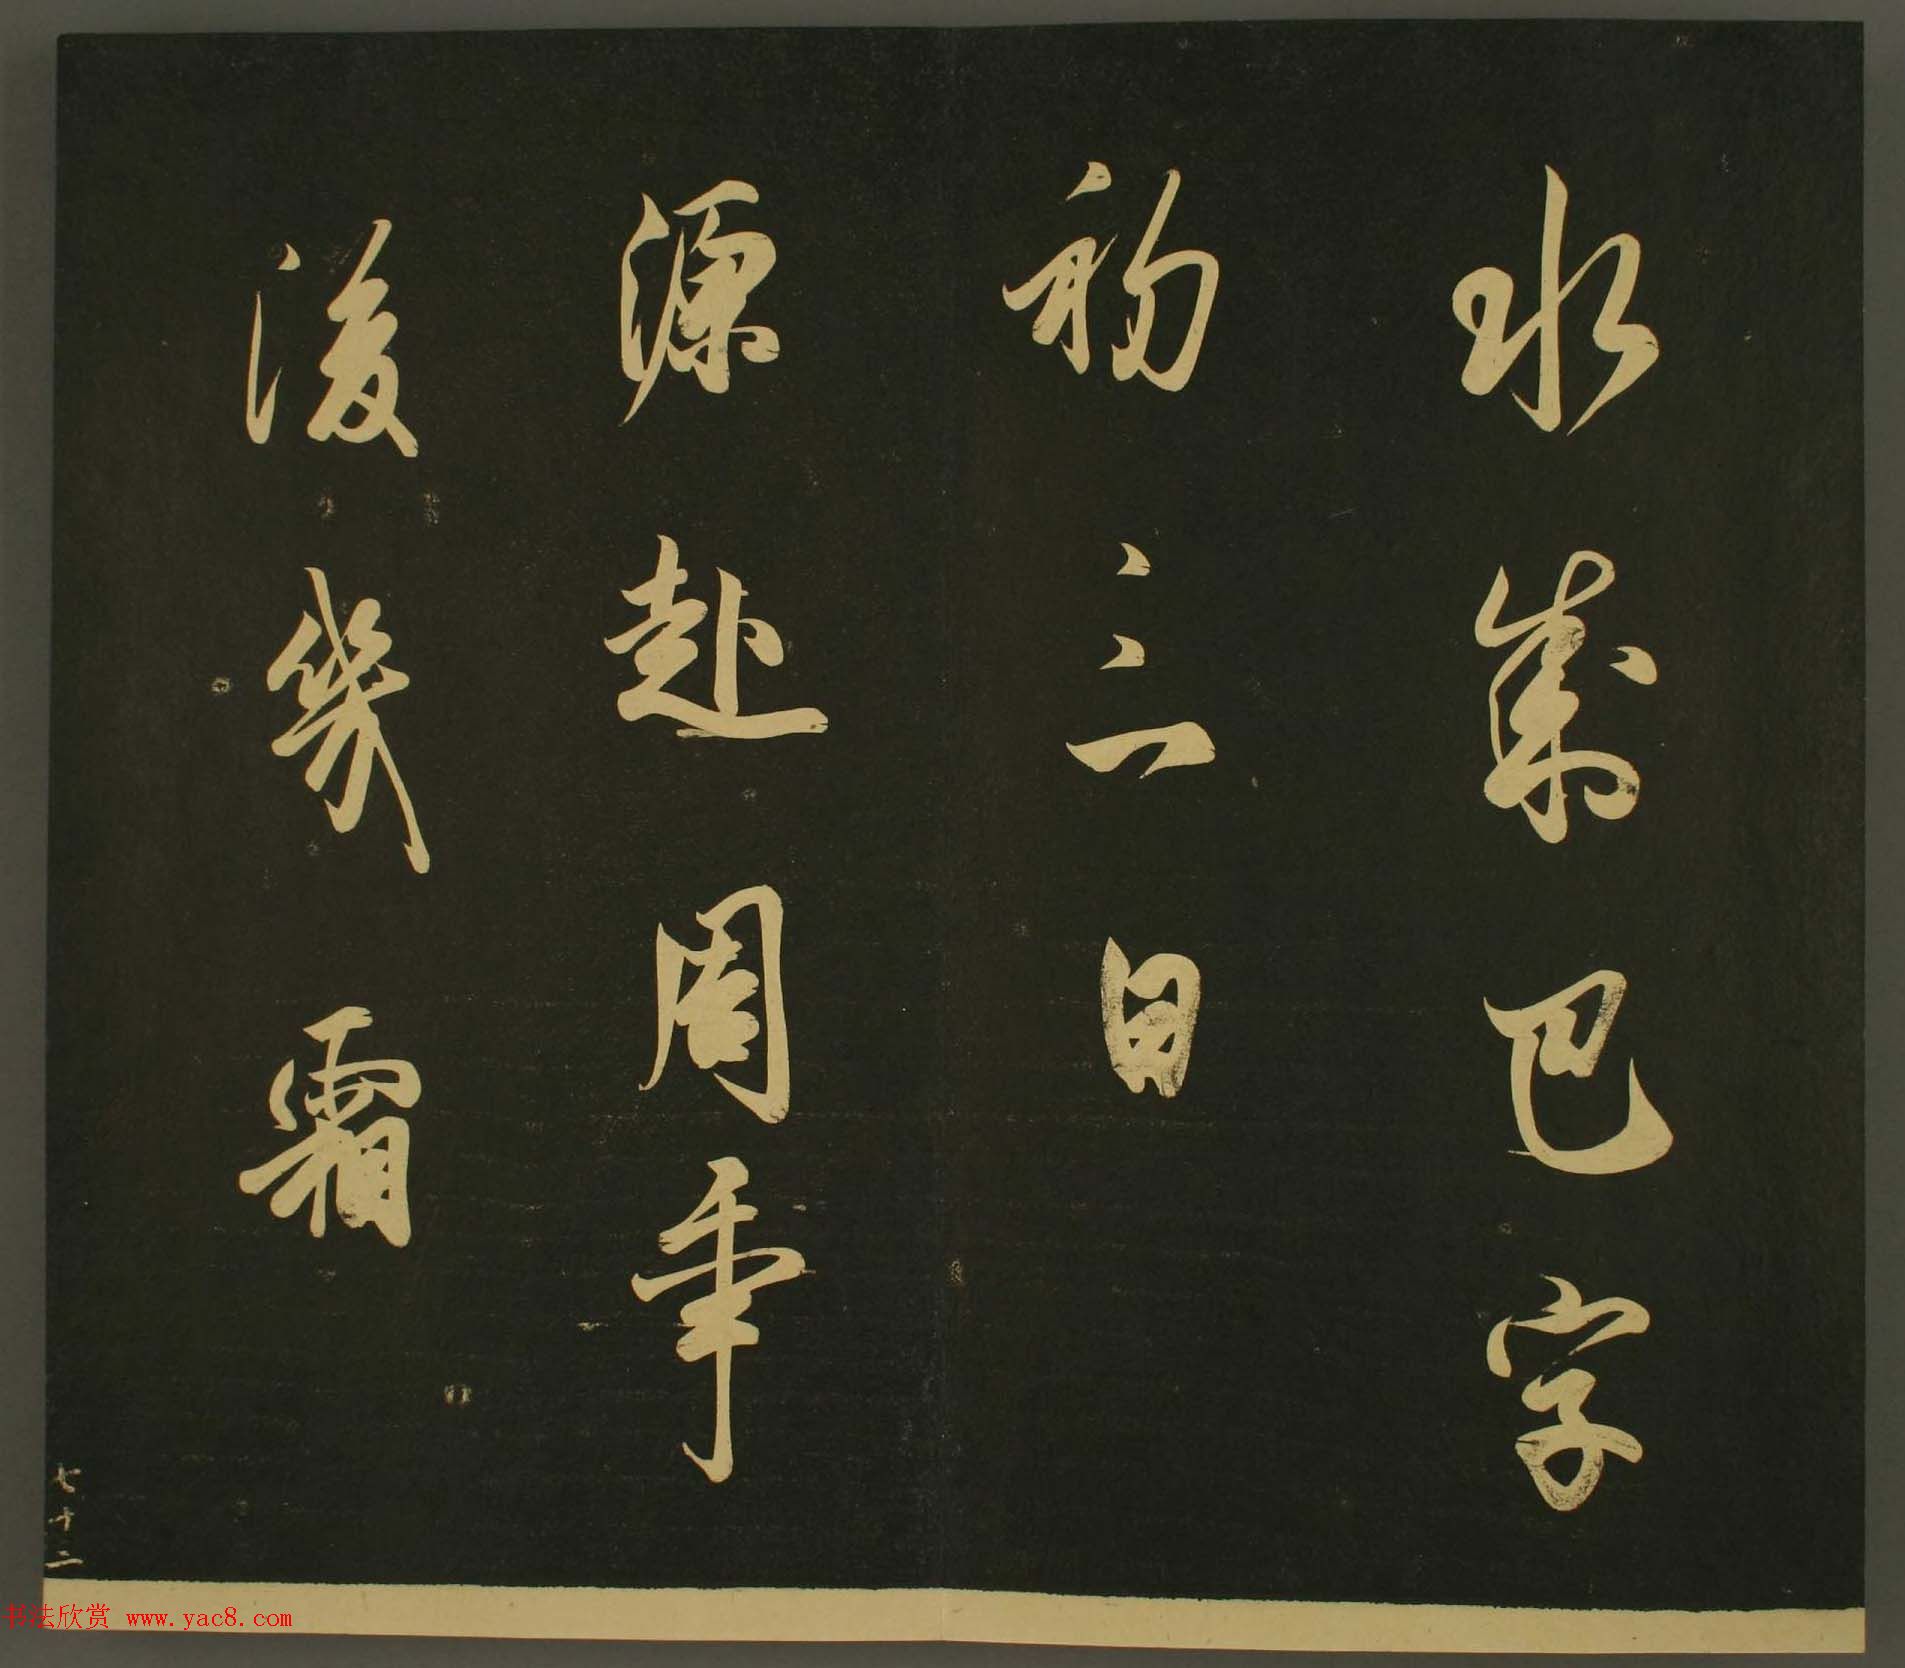 水成巴字
初三日
源赴周年
後幾霜
七十二
书法欣赏 www.yac8.com